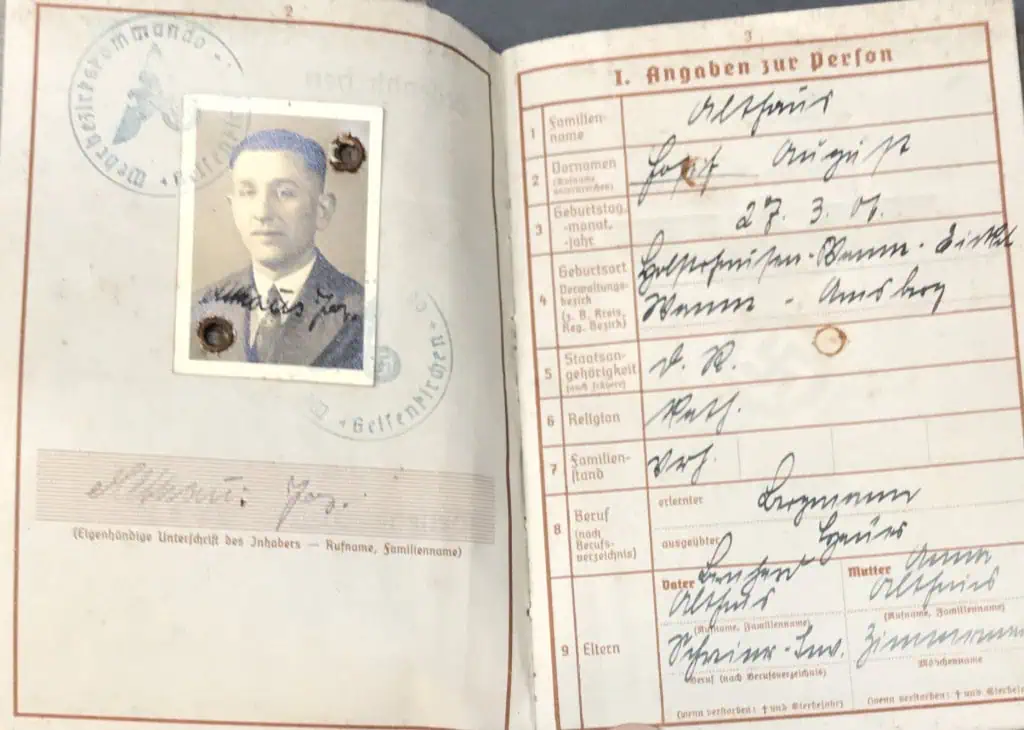 2
Wehrbezirkskommando
Gelsenkirchen
Althaus Jos.
Gelsenkirchen
Althaus Jos.
(Eigenhändige Unterschrift des Inhabers — Rufname, Familienname)
3
I. Angaben zur Person
1 Familien-
name
Althaus
2 Vornamen
(Rufname
unterstreichen)
Josef August
3 Geburtstag,
-monat,
-jahr
27. 3. 01.
4 Geburtsort
Verwaltungs-
bezirk
(z. B. Kreis,
Reg. Bezirk)
Holsterhausen - Wanne - Eickel
Wanne - Arnsberg
5 Staatsan-
gehörigkeit
(auch frühere)
D. R.
6 Religion
Kath.
7 Familien-
stand
verh.
8 Beruf
(nach
Berufs-
verzeichnis)
erlernter
Bergmann
ausgeübter
Hauer
9 Eltern
Vater Bernhard
Althaus
(Rufname, Familienname)
Schreiner - Inv.
Beruf (nach Berufsverzeichnis)
(wenn verstorben: † und Sterbejahr)
Mutter Anna
Althaus
(Rufname, Familienname)
Zimmermann
Mädchenname
(wenn verstorben: † und Sterbejahr)